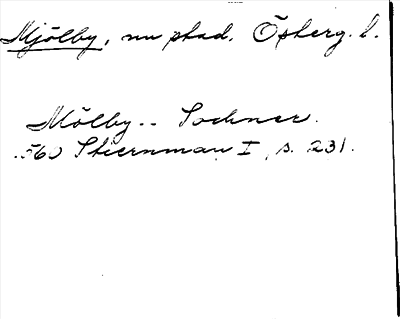 Mjölby, nu stad. Östberg. l.
Mölby.. Socknar.
560 Stiernman I, s. 231.